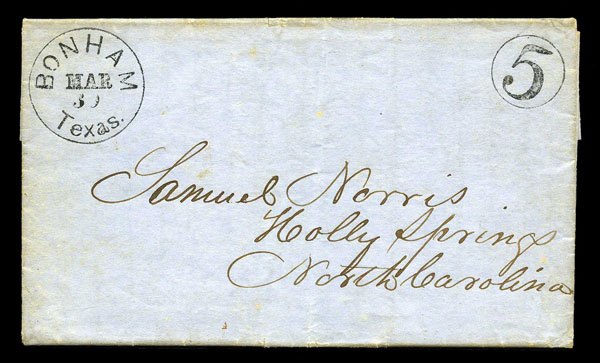 BONHAM
MAR
30
Texas.
5
Samuel Norris
Holly Springs
North Carolina